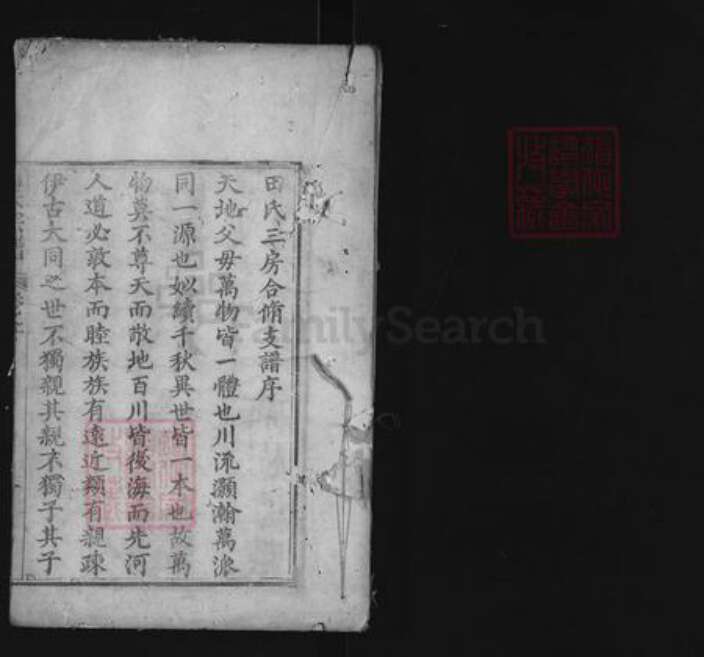 田氏三房合脩支譜序
天地父母萬物皆一體也川流灝瀚萬派
同一源也姒續千秋異世皆一本也故萬
物莫不尊天而敬地百川皆後海而先河
人道必敦本而睦族族有遠近類有親疎
伊古大同之世不獨親其親不獨子其子
FamilySearch